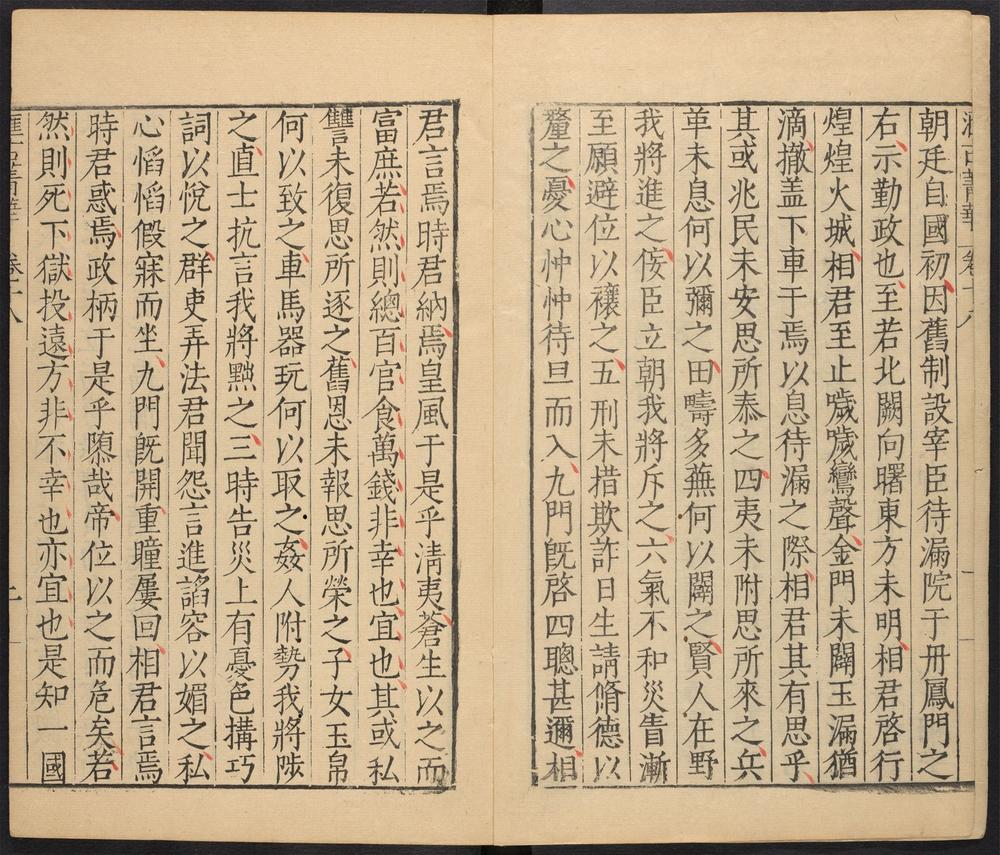 朝廷自國初因舊制設宰臣待漏院于丹鳳門之
右示勤政也至若北闕向曙東方未明相君啓行
煌煌火城相君至止噦噦鸞聲金門未闢玉漏猶
滴撤盖下車于焉以息待漏之際相君其有思乎
其或兆民未安思所泰之四夷未附思所來之兵
革未息何以彌之田疇多蕪何以闢之賢人在野
我將進之佞臣立朝我將斥之六氣不和災眚漸
至願避位以禳之五刑未措欺詐日生請脩德以
釐之憂心忡忡待旦而入九門旣啓四聰甚邇相
君言焉時君納焉皇風于是乎淸夷蒼生以之而
富庶若然則總百官食萬錢非幸也宜也其或私
讐未復思所逐之舊恩未報思所榮之子女玉帛
何以致之車馬器玩何以取之姦人附勢我將陟
之直士抗言我將黜之三時告災上有憂色構巧
詞以悅之群吏弄法君聞怨言進謟容以媚之私
心慆慆假寐而坐九門旣開重瞳屢回相君言焉
時君惑焉政柄于是乎隳哉帝位以之而危矣若
然則死下獄投遠方非不幸也亦宜也是知一國